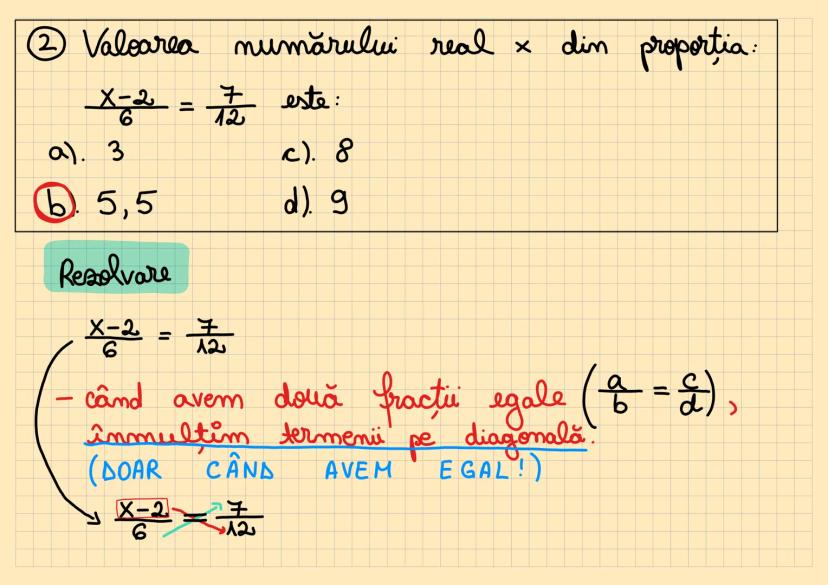 ② Valoarea numărului real x din proporția:
x-2/6 = 7/12 este:
a). 3 c). 8
b). 5,5 d). 9
Rezolvare
x-2/6 = 7/12
- când avem două fracții egale (a/b = c/d),
înmulțim termenii pe diagonală.
(DOAR CÂND AVEM EGAL!)
x-2/6 = 7/12